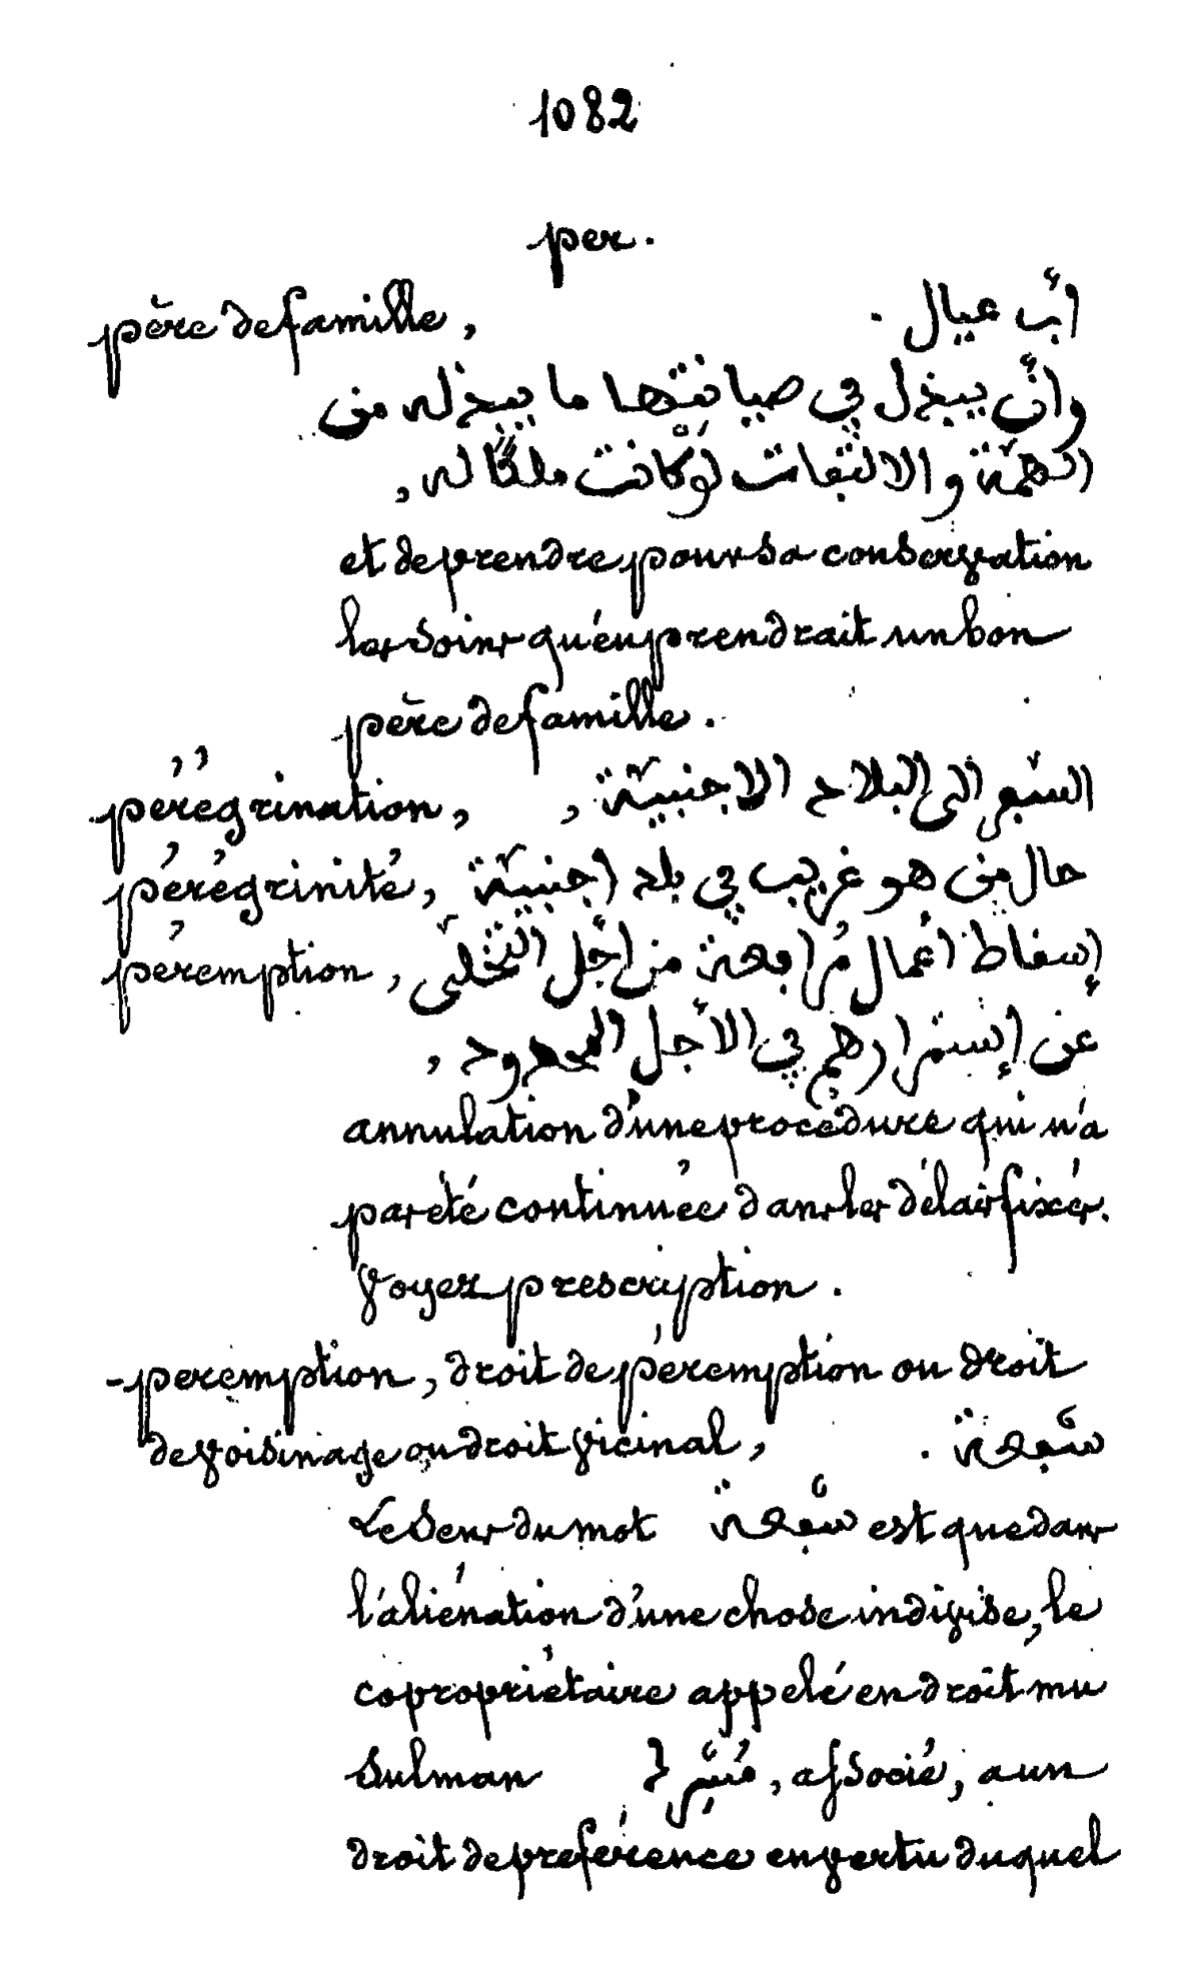 1082
per.
père de famille, أب عيال.
وأن يبذل في صيانتها ما يبذله من
الهمّة والالتفات لو كانت ملكًا له,
et de prendre pour sa conservation
les soins qu'en prendrait un bon
père de famille.
pérégrination, السّفر الى البلاد الاجنبيّة,
pérégrinité, حال من هو غريب في بلد اجنبيّة
péremption, إسقاط أعمال مُرافعة من أجل التخلّى
عن إستمرارهم في الأجل المحدود,
annulation d'une procédure qui n'a
pas été continuée dans les délais fixés.
Voyez prescription.
-peremption, droit de péremption ou droit
de voisinage ou droit vicinal, شُفعة.
Le sens du mot شُفعة est que dans
l'aliénation d'une chose indivise, le
copropriétaire appelé en droit mu
sulman associé, a un
droit de preférence en vertu duquel